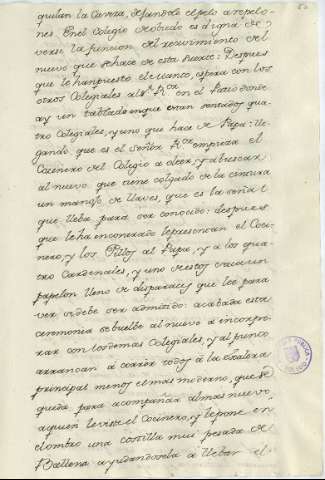 quitan la Cavesa, dejandole el pelo a repelo-
nes. En el Colegio de obiedo es digna de
verse la funcion del recivimiento del
nuevo que se hace de esta suerte: Despues
que le han puesto el manto, espera con los
otros Colegiales al Sr. Ror. en el Patio donde
ay un tablado en que estan sentados qua-
tro Colegiales, y uno que hace de Papa: lle-
gando que es el Señor Ror. empieza el
Cocinero del Colegio a oler, y a buscar
al nuevo que tiene colgado de la cintura
un manojo de llaves, que es la señal
que lleba para ser conocido: despues
que le ha encontrado le presentan el Coci-
nero, y los Pillos al Papa, y a los qua-
tro Cardenales, y uno de estos saca un
papelon lleno de disparates que lee para
ver si debe ser admitido: acabada esta
ceremonia se buelbe al nuevo a incorpo-
rar con los demas Colegiales, y al punto
arrancan a correr todos a la escalera
principal menos el mas moderno, que se
queda para acompañar al mas nuevo,
a quien le viste el Cocinero, y le pone en
el ombro una costilla mui pesada de
Ballena ayudandosela a llebar el